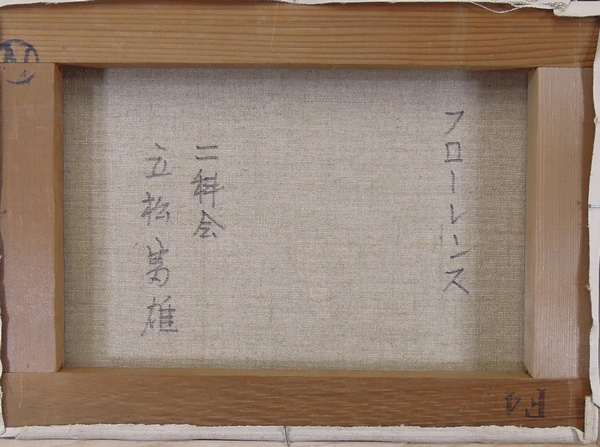 フローレンス
二科会
立松萬雄
F4